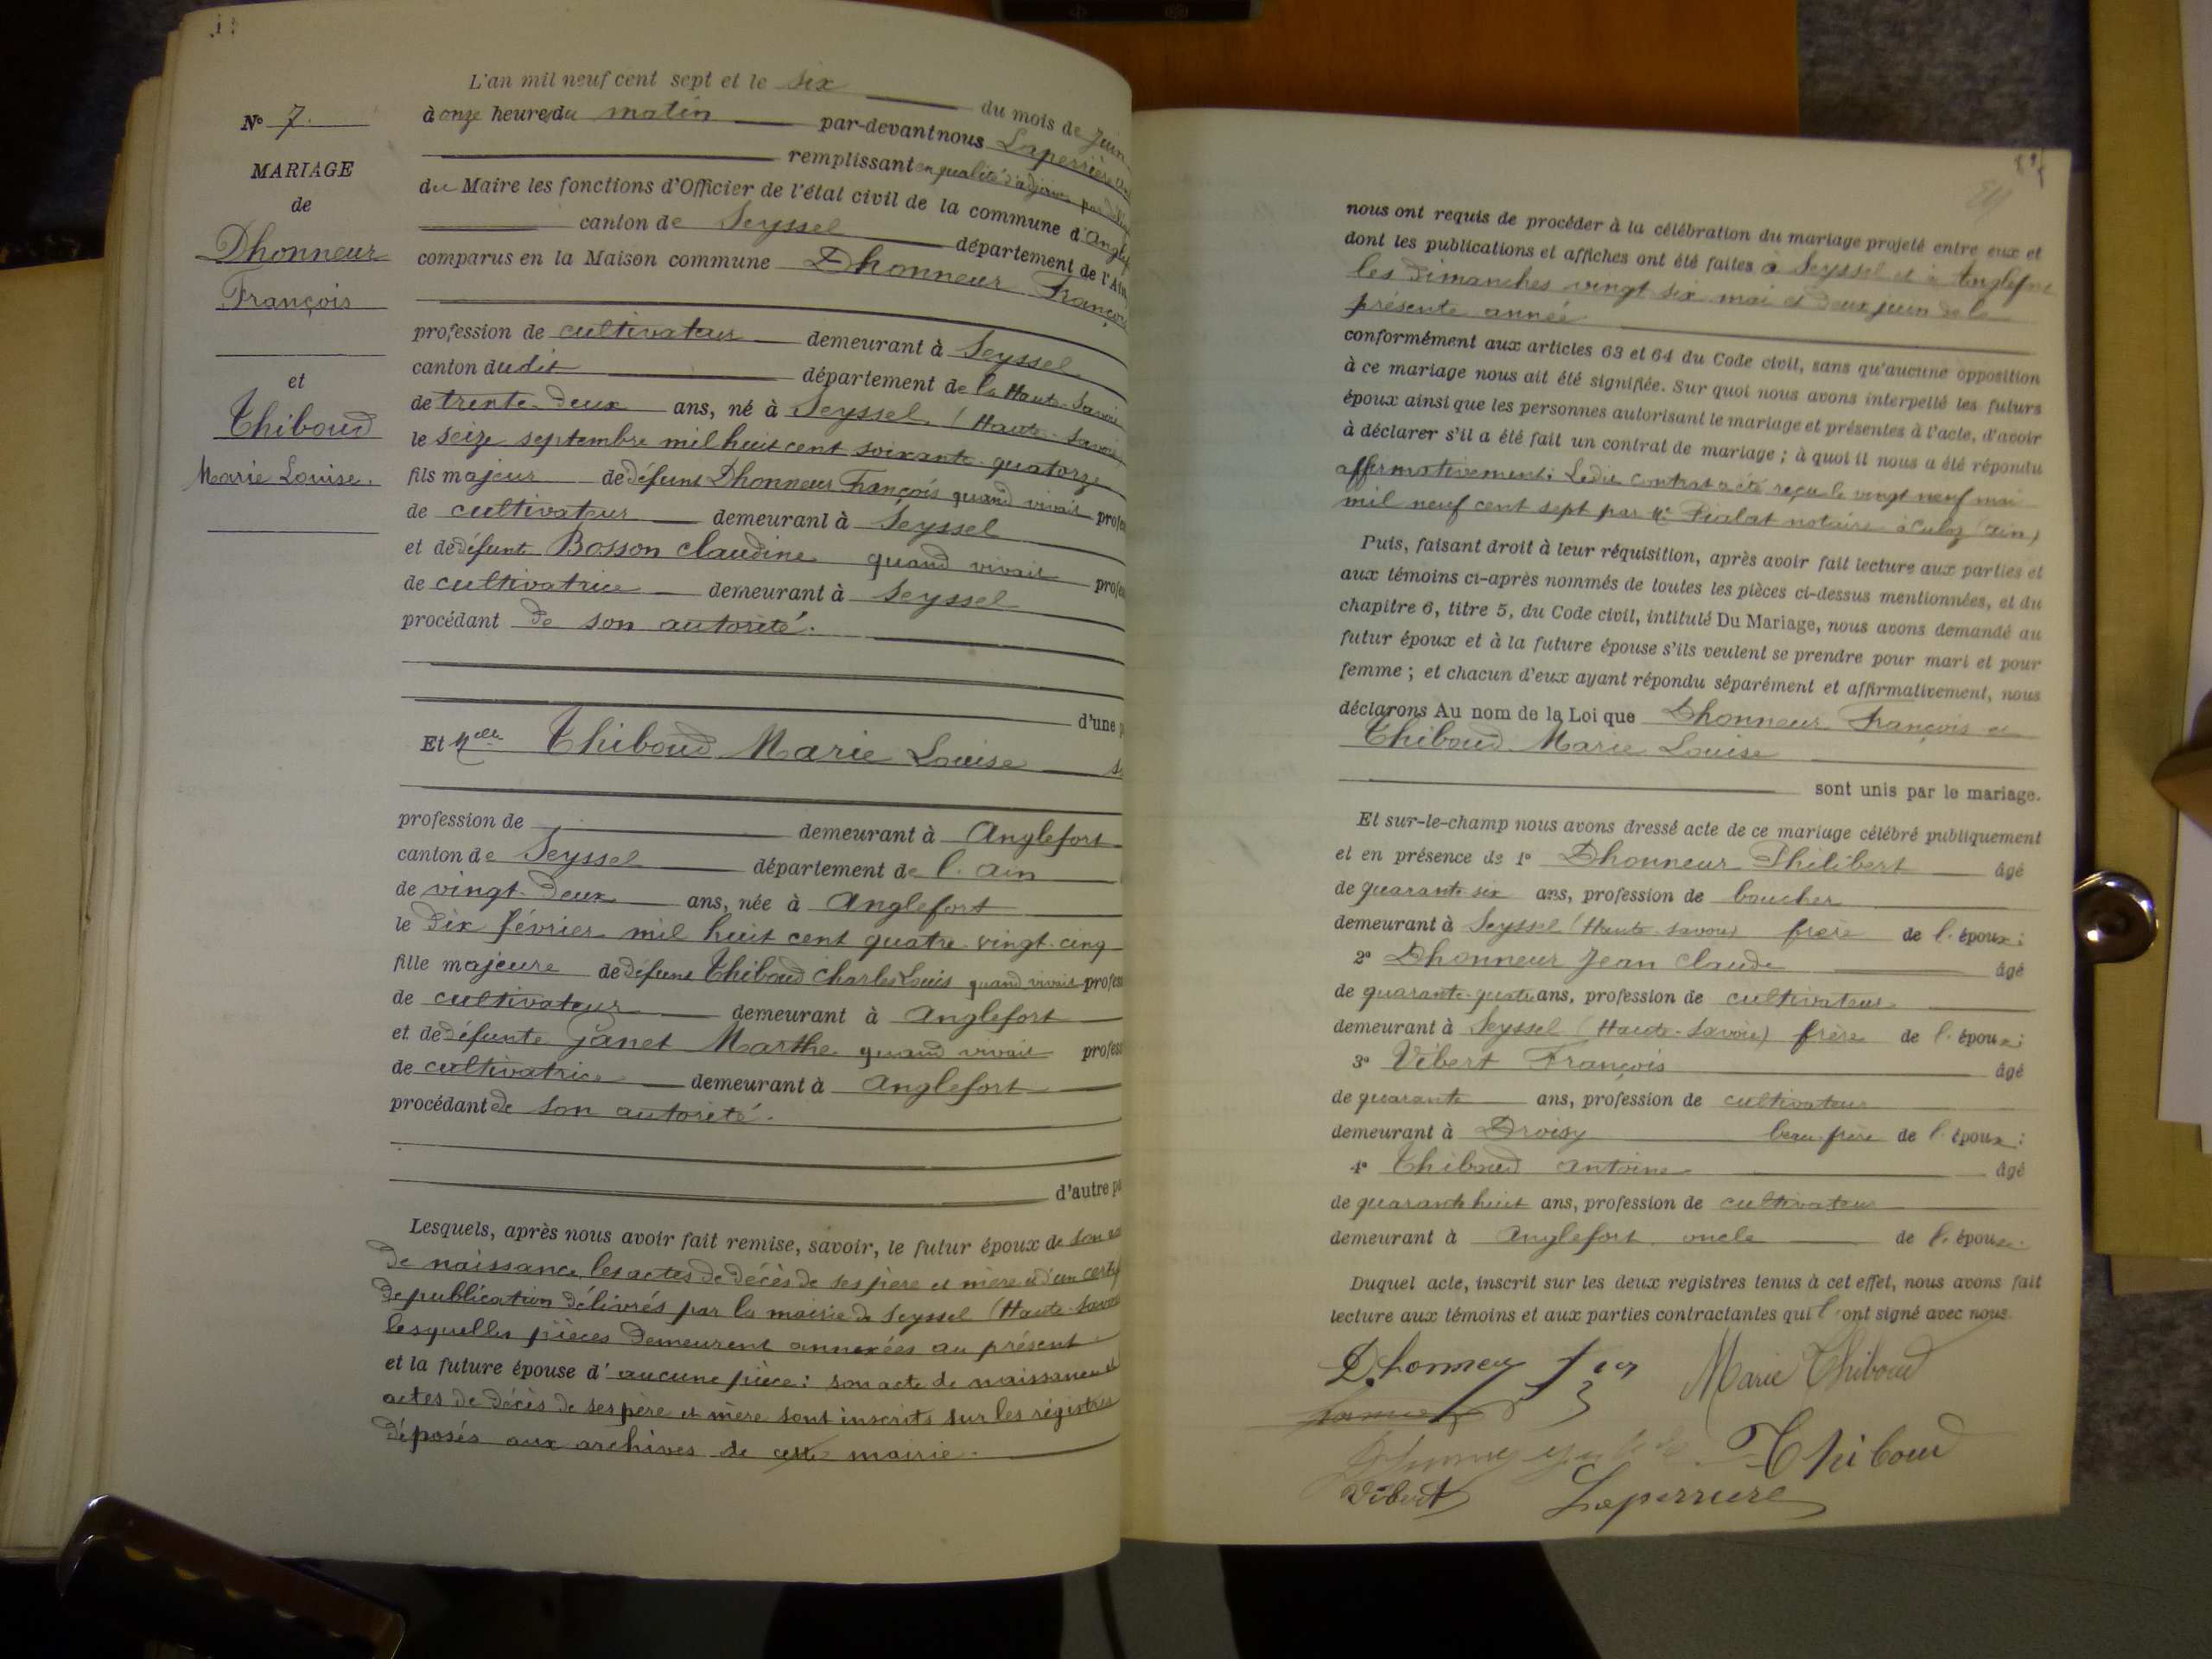 N° 7.
MARIAGE
de
Dhonneur
François
et
Thiboud
Marie Louise.
L'an mil neuf cent sept et le six du mois de Juin
à onze heures du matin par-devant nous Laperrière
remplissant en qualité d'adjoint par
du Maire les fonctions d'Officier de l'état civil de la commune d'Anglef
canton de Seyssel département de l'Ain
comparus en la Maison commune Dhonneur François
profession de cultivateur demeurant à Seyssel
canton dudit département de la Haute-Savoie
de trente-deux ans, né à Seyssel, (Haute-Savoie)
le seize septembre mil huit cent soixante-quatorze
fils majeur de défunt Dhonneur François quand vivait profes
de cultivateur demeurant à Seyssel
et de défunte Bosson Claudine quand vivait profes
de cultivatrice demeurant à Seyssel
procédant de son autorité.
d'une p
Et Melle Thiboud Marie Louise s
profession de demeurant à Anglefort
canton de Seyssel département de l'Ain
de vingt-deux ans, née à Anglefort
le dix février mil huit cent quatre-vingt-cinq
fille majeure de défunt Thiboud Charles Louis quand vivait profess
de cultivateur demeurant à Anglefort
et de défunte Janet Marthe quand vivait profess
de cultivatrice demeurant à Anglefort
procédant de son autorité.
d'autre pa
Lesquels, après nous avoir fait remise, savoir, le futur époux de son
de naissance, les actes de décès de ses père et mère et d'un certif
de publication délivrés par la mairie de Seyssel (Haute-Savoie)
lesquelles pièces demeurent annexées au présent
et la future épouse d'aucune pièce: son acte de naissance et
actes de décès de ses père et mère sont inscrits sur les régistres
déposés aux archives de cette mairie.
nous ont requis de procéder à la célébration du mariage projeté entre eux et
dont les publications et affiches ont été faites à Seyssel et à Anglefort
les dimanches vingt-six mai et deux juin de la
présente année
conformément aux articles 63 et 64 du Code civil, sans qu'aucune opposition
à ce mariage nous ait été signifiée. Sur quoi nous avons interpellé les futurs
époux ainsi que les personnes autorisant le mariage et présentes à l'acte, d'avoir
à déclarer s'il a été fait un contrat de mariage ; à quoi il nous a été répondu
affirmativement: Ledit contrat a été reçu le vingt neuf mai
mil neuf cent sept par Me Pialat notaire à Culoz (Ain)
Puis, faisant droit à leur réquisition, après avoir fait lecture aux parties et
aux témoins ci-après nommés de toutes les pièces ci-dessus mentionnées, et du
chapitre 6, titre 5, du Code civil, intitulé Du Mariage, nous avons demandé au
futur époux et à la future épouse s'ils veulent se prendre pour mari et pour
femme ; et chacun d'eux ayant répondu séparément et affirmativement, nous
déclarons Au nom de la Loi que Dhonneur François et
Thiboud Marie Louise
sont unis par le mariage.
Et sur-le-champ nous avons dressé acte de ce mariage célébré publiquement
et en présence de 1° Dhonneur Philibert âgé
de quarante-six ans, profession de boucher
demeurant à Seyssel (Haute-Savoie) frère de l'époux;
2° Dhonneur Jean Claude âgé
de quarante-quatre ans, profession de cultivateur
demeurant à Seyssel (Haute-Savoie) frère de l'époux;
3° Vibert François âgé
de quarante ans, profession de cultivateur
demeurant à Droisy beau-frère de l'époux;
4° Thiboud Antoine âgé
de quarante huit ans, profession de cultivateur
demeurant à Anglefort oncle de l'épouse.
Duquel acte, inscrit sur les deux registres tenus à cet effet, nous avons fait
lecture aux témoins et aux parties contractantes qui l'ont signé avec nous
Marie Thiboud
Thiboud
Vibert Laperriere